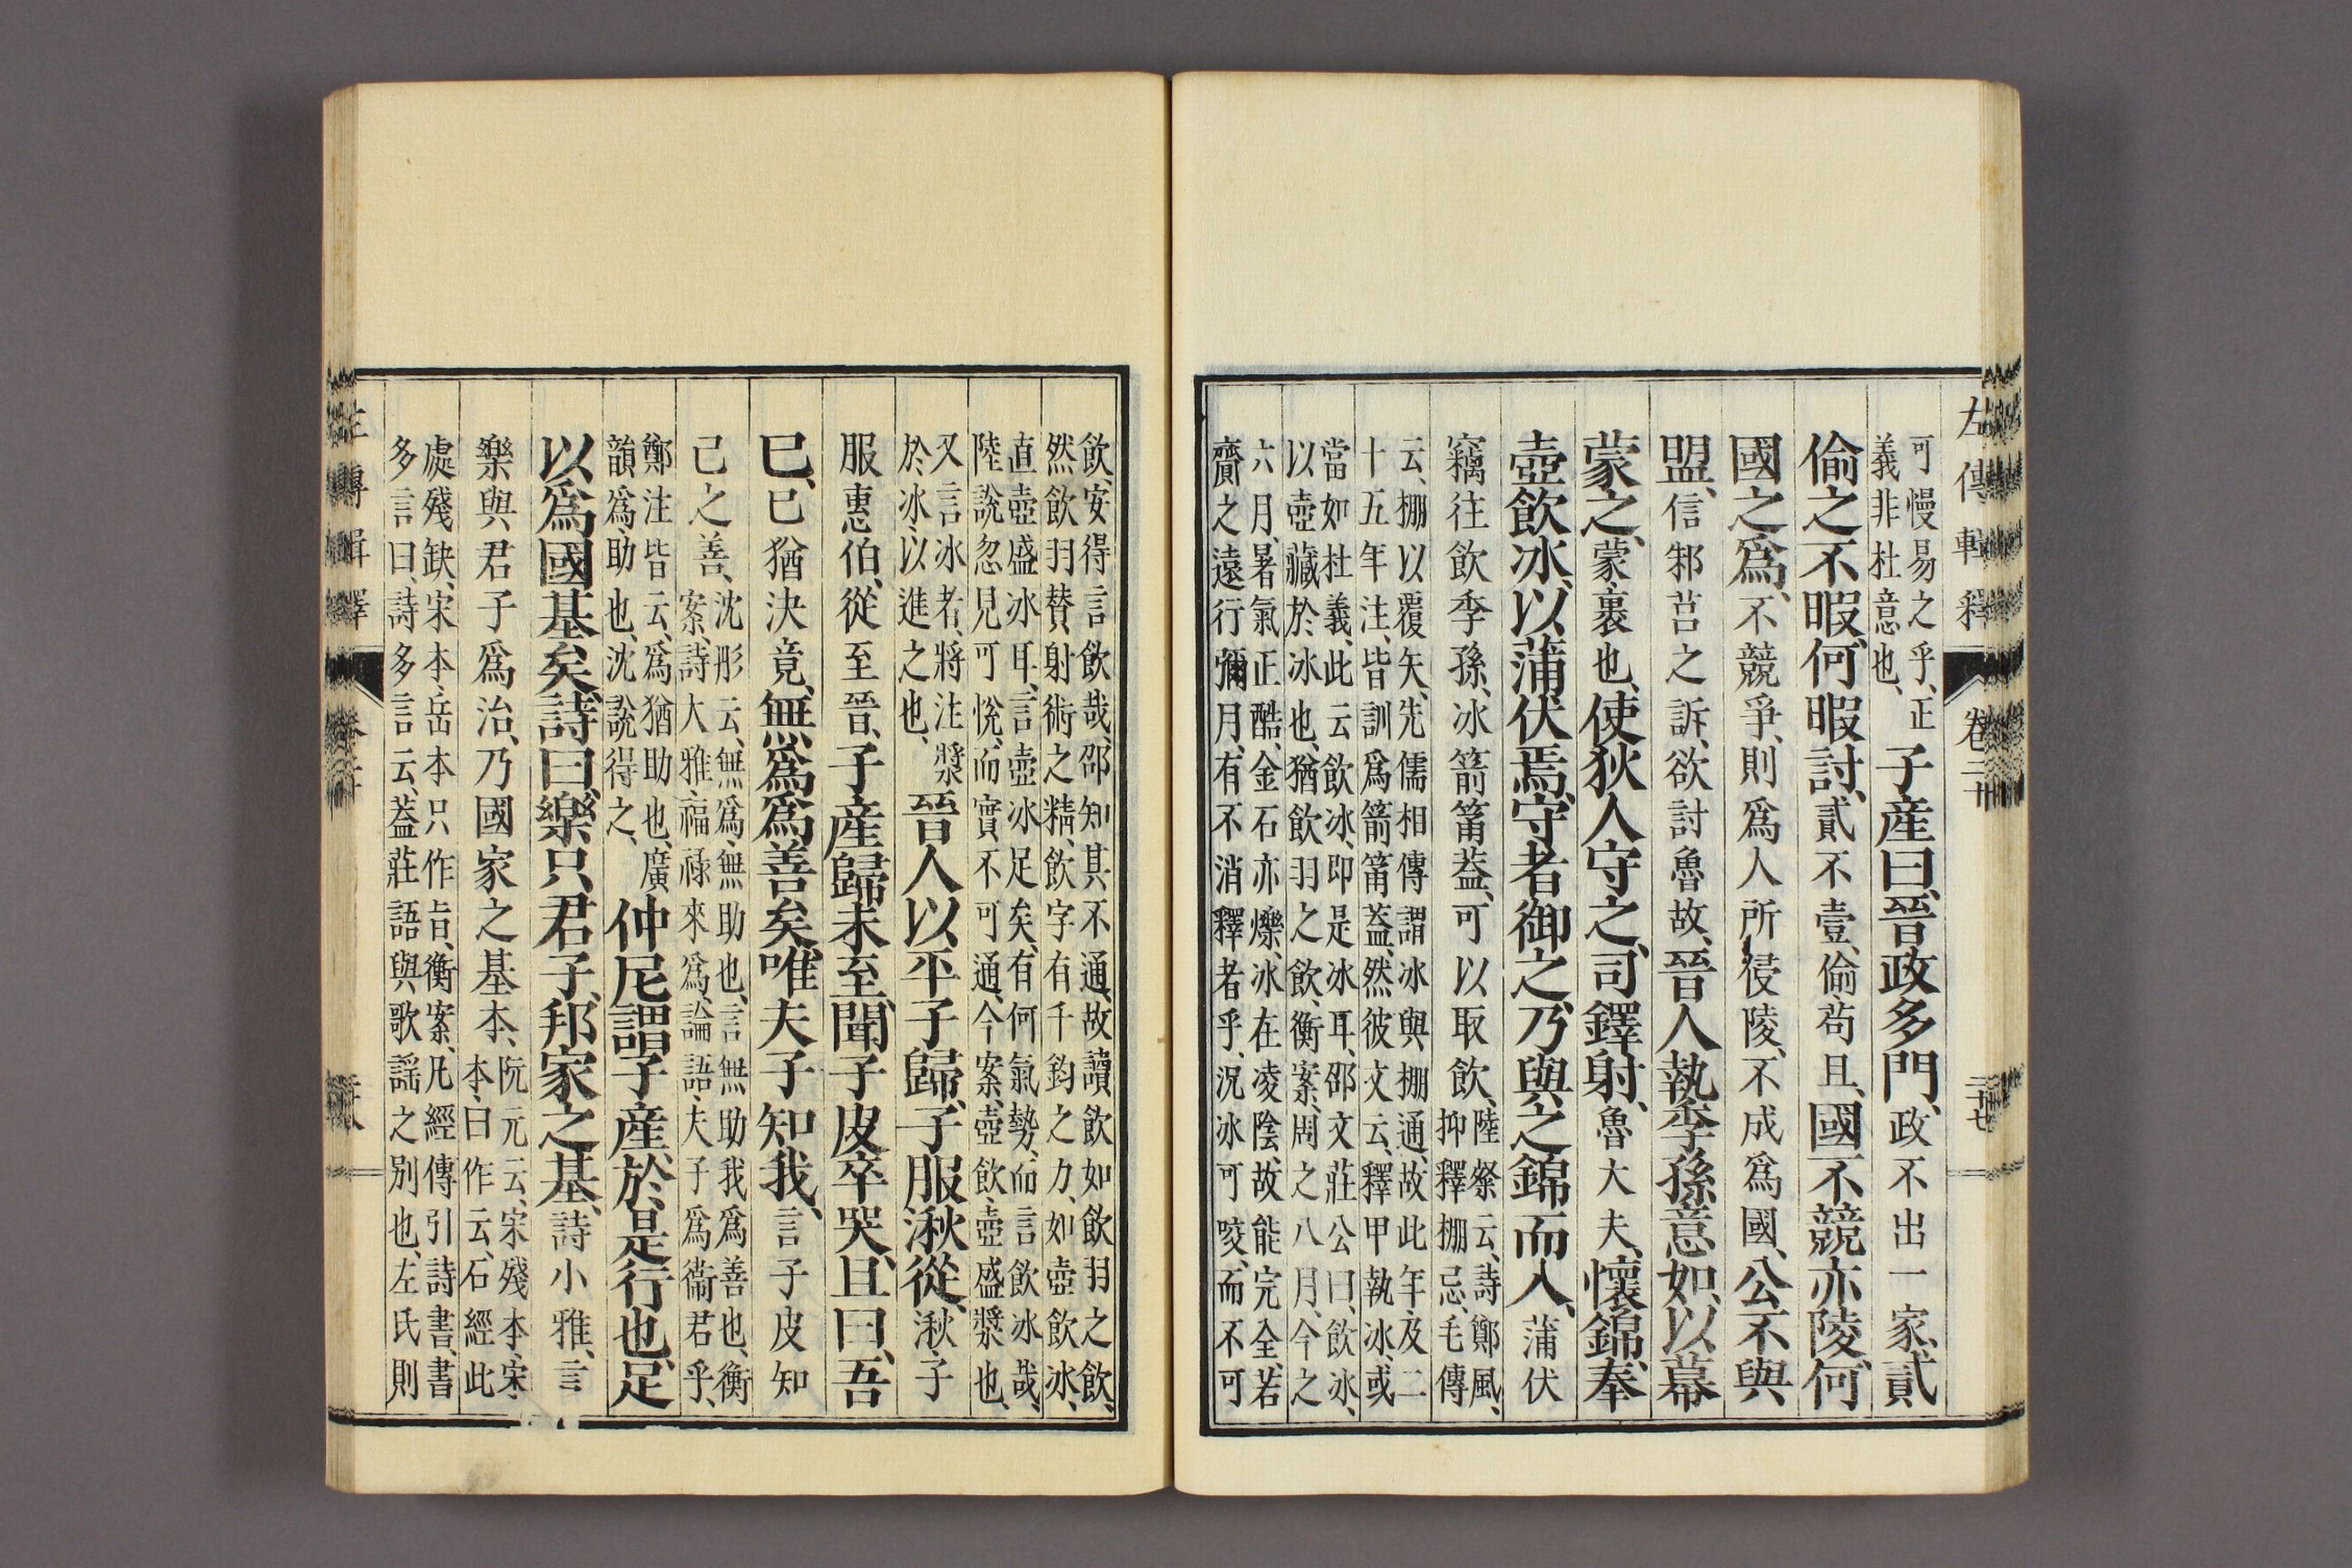 左傳輯釋 卷二十 二十七
可慢易之乎、正
義非杜意也、
子產曰、晉政多門、政不出一家、貳
偷之不暇、何暇討、貳不壹、偷、苟且、國不競亦陵、何
國之爲、不競爭、則爲人所侵陵、不成爲國、公不與
盟、信邾莒之訴、欲討魯故、晉人執季孫意如、以幕
蒙之、蒙、裹也、使狄人守之、司鐸射、魯大夫、懷錦、奉
壺飲冰、以蒲伏焉、守者御之、乃與之錦而入、蒲伏
竊往飲季孫、冰箭筩蓋、可以取飲、
陸粲云、詩鄭風、
抑釋掤忌、毛傳
云、掤以覆矢、先儒相傳謂冰與掤通、故此年、及二
十五年注、皆訓爲箭筩蓋、然彼文云、釋甲執冰、或
當如杜義、此云飲冰、即是冰耳、邵文莊公曰、飲冰、
以壺藏於冰也、猶飲羽之飲、衡案、周之八月、今之
六月、暑氣正酷、金石亦爍、冰在凌陰、故能完全、若
齎之遠行彌月、有不消釋者乎、況冰可咬、而不可
飲、安得言飲哉、邵知其不通、故讀飲如飲羽之飲、
然飲羽贊射術之精、飲字有千鈞之力、如壺飲冰、
直壺盛冰耳、言壺冰足矣、有何氣勢、而言飲冰哉、
陸說忽見可悅、而實不可通、今案、壺飲、壺盛漿也、
又言冰者、將注漿
於冰、以進之也、
晉人以平子歸、子服湫從、湫、子
服惠伯、從至晉、子產歸、未至、聞子皮卒、哭、且曰、吾
已、已猶決竟、無爲爲善矣、唯夫子知我、言子皮知
己之善、
沈彤云、無爲、無助也、言無助我爲善也、衡
案、詩大雅、福祿來爲、論語、夫子爲衞君乎、
鄭注皆云、爲猶助也、廣
韻爲、助也、沈說得之、
仲尼謂子產、於是行也、足
以爲國基矣、詩曰、樂只君子、邦家之基、詩小雅、言
樂與君子爲治、乃國家之基本、
阮元云、宋殘本、宋
本、曰作云、石經此
處殘缺、宋本、岳本只作旨、衡案、凡經傳引詩書、書
多言曰、詩多言云、蓋莊語與歌謠之別也、左氏則